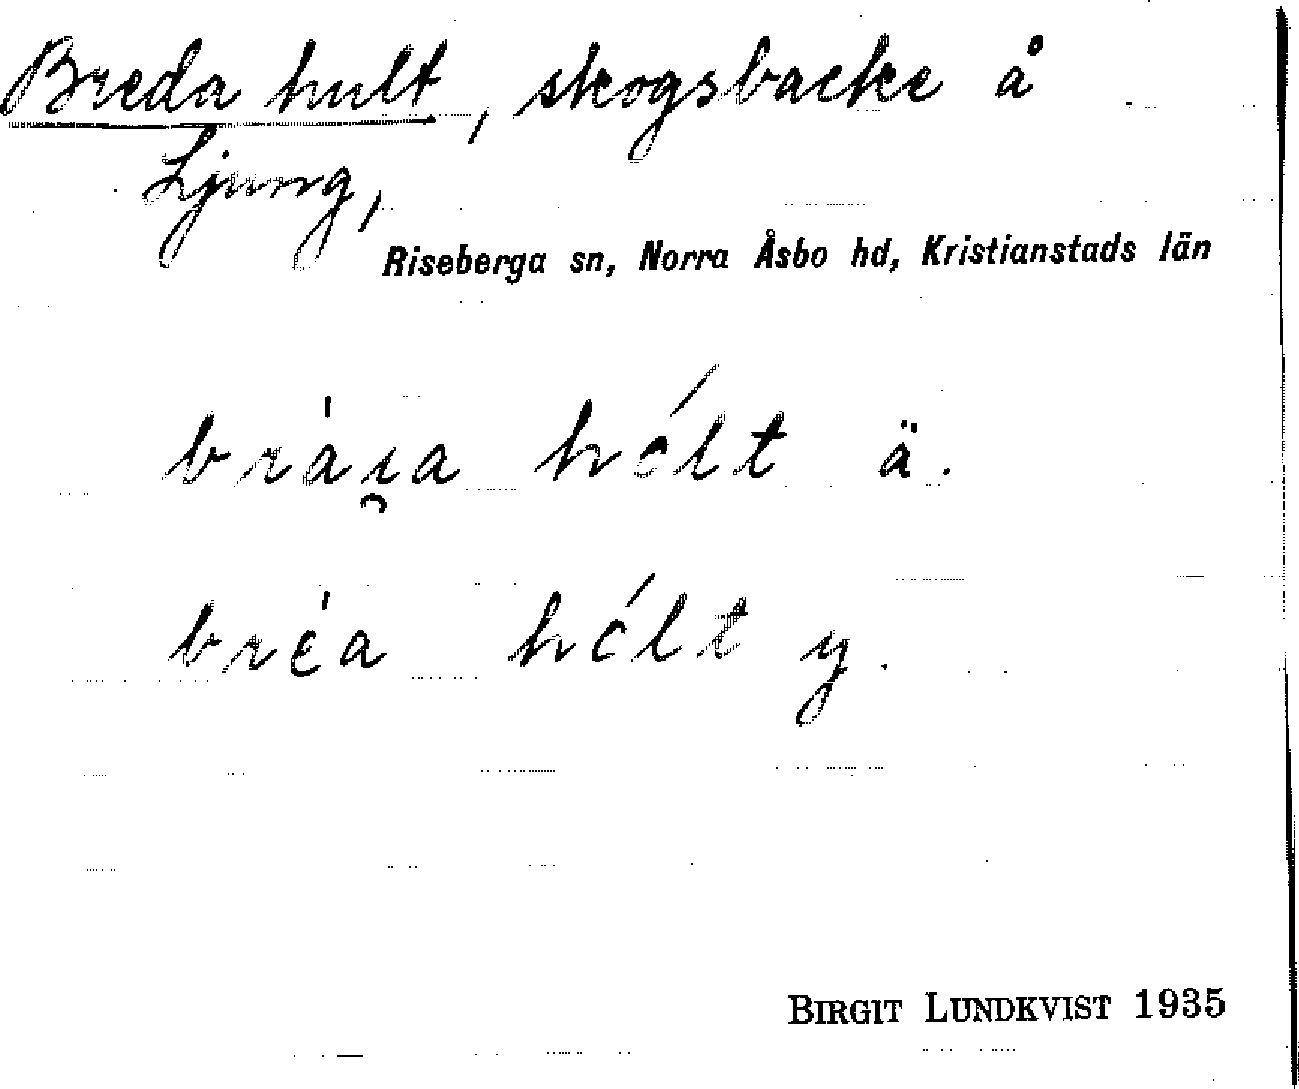 Breda hult, skogsbacke å
Ljung,
Riseberga sn, Norra Åsbo hd, Kristianstads län
bràı̯a hólt ä.
brèa hólt y.
BIRGIT LUNDKVIST 1935